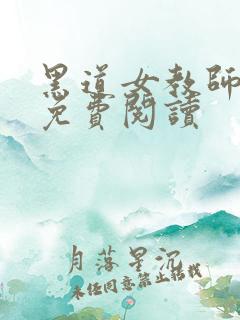 黑道女教師
免費閱讀
月落星沉
未经同意禁止转载